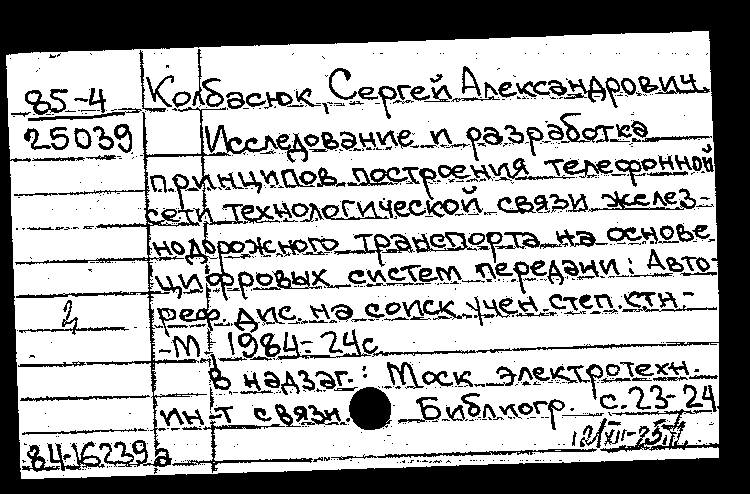 85-4 Колбасюк, Сергей Александрович.
25039 Исследование и разработка
принципов построения телефонной
сети технологической связи желез-
нодорожного транспорта на основе
цифровых систем передачи: Авто-
реф. дис. на соиск учен степ. ктн.-
-М 1984.- 24с
В надзаг.: Моск электротехн.
ин-т связи. Библиогр. с. 23-24
84-16239а